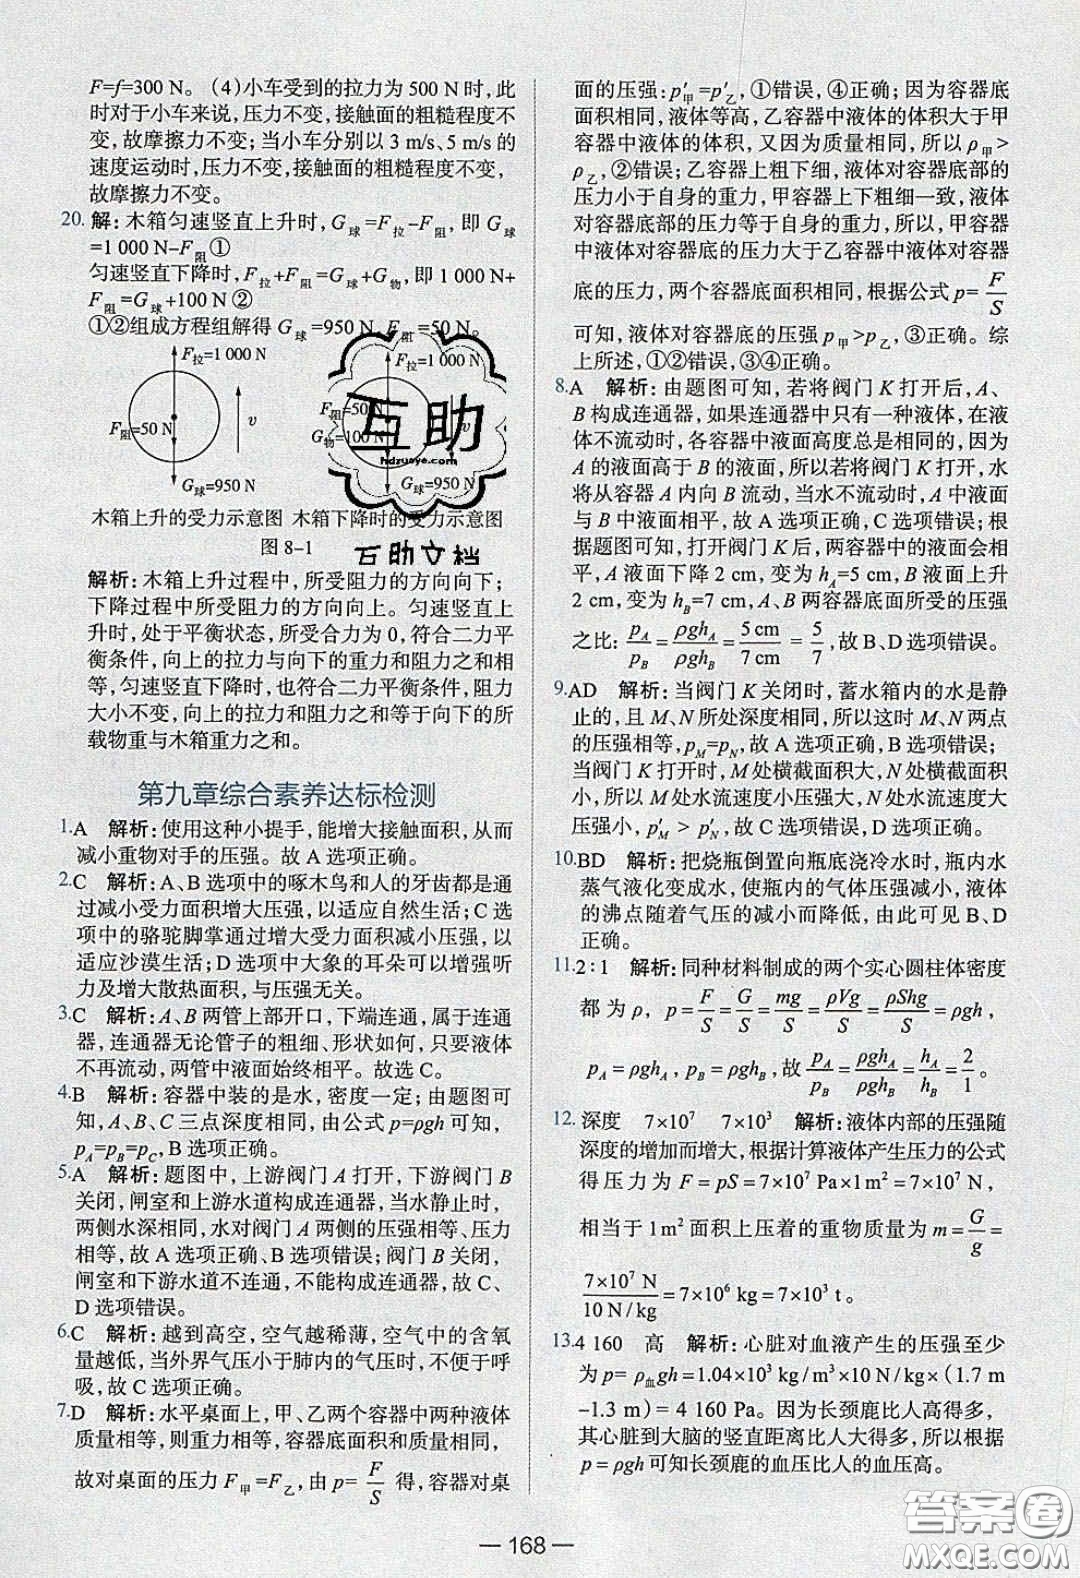 F=f=300 N。(4)小车受到的拉力为 500 N 时,此
时对于小车来说,压力不变,接触面的粗糙程度不
变,故摩擦力不变;当小车分别以 3 m/s、5 m/s 的
速度运动时,压力不变,接触面的粗糙程度不变,
故摩擦力不变。
20. 解:木箱匀速竖直上升时,G球=F拉-F阻,即 G球
=1 000 N-F阻①
匀速竖直下降时,F拉+F阻=G球+G物,即 1 000 N+
F阻=G球+100 N ②
①②组成方程组解得 G球=950 N,F阻=50 N。
F拉=1 000 N
F阻=50 N
v
G球=950 N
F拉=1 000 N
F阻=50 N
G物=100 N
v
G球=950 N
互助
hdzuoye.com
互助文档
木箱上升的受力示意图 木箱下降时的受力示意图
图 8-1
解析:木箱上升过程中,所受阻力的方向向下;
下降过程中所受阻力的方向向上。匀速竖直上
升时,处于平衡状态,所受合力为 0,符合二力平
衡条件,向上的拉力与向下的重力和阻力之和相
等,匀速竖直下降时,也符合二力平衡条件,阻力
大小不变,向上的拉力和阻力之和等于向下的所
载物重与木箱重力之和。
第九章综合素养达标检测
1. A 解析:使用这种小提手,能增大接触面积,从而
减小重物对手的压强。故 A 选项正确。
2. C 解析:A、B 选项中的啄木鸟和人的牙齿都是通
过减小受力面积增大压强,以适应自然生活;C 选
项中的骆驼脚掌通过增大受力面积减小压强,以
适应沙漠生活;D 选项中大象的耳朵可以增强听
力及增大散热面积,与压强无关。
3. C 解析:A、B 两管上部开口,下端连通,属于连通
器,连通器无论管子的粗细、形状如何,只要液体
不再流动,两管中液面始终相平。故选 C。
4. B 解析:容器中装的是水,密度一定;由题图可
知,A、B、C 三点深度相同,由公式 p=ρgh 可知,
pA=pB=pC,B 选项正确。
5. A 解析:题图中,上游阀门 A 打开,下游阀门 B
关闭,闸室和上游水道构成连通器,当水静止时,
两侧水深相同,水对阀门 A 两侧的压强相等、压力
相等,故 A 选项正确、B 选项错误;阀门 B 关闭,
闸室和下游水道不连通,不能构成连通器,故 C、
D 选项错误。
6. C 解析:越到高空,空气越稀薄,空气中的含氧
量越低,当外界气压小于肺内的气压时,不便于呼
吸,故 C 选项正确。
7. D 解析:水平桌面上,甲、乙两个容器中两种液体
质量相等,则重力相等,容器底面积和质量相同,
故对桌面的压力 F甲=F乙,由 p=F/S 得,容器对桌
面的压强:p′甲=p′乙,①错误,④正确;因为容器底
面积相同,液体等高,乙容器中液体的体积大于甲
容器中液体的体积,又因为质量相同,所以 ρ甲>
ρ乙,②错误;乙容器上粗下细,液体对容器底部的
压力小于自身的重力,甲容器上下粗细一致,液体
对容器底部的压力等于自身的重力,所以,甲容器
中液体对容器底的压力大于乙容器中液体对容器
底的压力,两个容器底面积相同,根据公式 p=F/S
可知,液体对容器底的压强 p甲>p乙,③正确。综
上所述,①②错误,③④正确。
8. A 解析:由题图可知,若将阀门 K 打开后,A、
B 构成连通器,如果连通器中只有一种液体,在液
体不流动时,各容器中液面高度总是相同的,因为
A 的液面高于 B 的液面,所以将阀门 K 打开,水
将从容器 A 内向 B 流动,当水不流动时,A 中液面
与 B 中液面相平,故 A 选项正确,C 选项错误;根
据题图可知,打开阀门 K 后,两容器中的水面会相
平,A 液面下降 2 cm,变为 hA=5 cm,B 液面上升
2 cm,变为 hB=7 cm,A、B 两容器底面所受的压强
之比:pA/pB=ρghA/ρghB=5 cm/7 cm=5/7,故 B、D 选项错误。
9. AD 解析:当阀门 K 关闭时,蓄水箱内的水是静
止的,且 M、N 所处深度相同,所以这时 M、N 两点
的压强相等,pM=pN,故 A 选项正确,B 选项错误;
当阀门 K 打开时,M 处横截面积大,N 处横截面积
小,所以 M 处水流速度小压强大,N 处水流速度大
压强小,p′M > p′N,故 C 选项错误,D 选项正确。
10. BD 解析:把烧瓶倒置向瓶底浇冷水时,瓶内水
蒸气液化变成水,使瓶内的气体压强减小,液体
的沸点随着气压的减小而降低,由此可见 B、D
正确。
11. 2∶1 解析:同种材料制成的两个实心圆柱体密度
都为 ρ,p=F/S=G/S=mg/S=ρVg/S=ρShg/S=ρgh,
pA=ρghA,pB=ρghB,故 pA/pB=ρghA/ρghB=hA/hB=2/1。
12. 深度 7×10⁷ 7×10³ 解析:液体内部的压强随
深度的增加而增大,根据计算液体产生压力的公式
得压力为 F=pS=7×10⁷ Pa×1 m²=7×10⁷ N,
相当于 1 m² 面积上压着的重物质量为 m=G/g=
7×10⁷ N/10 N/kg=7×10⁶ kg=7×10³ t。
13. 4 160 高 解析:心脏对血液产生的压强至少
为 p=ρ血gh=1.04×10³ kg/m³×10 N/kg×(1.7 m
-1.3 m)=4 160 Pa。因为长颈鹿比人高得多,
其心脏到大脑的竖直距离比人大得多,所以根据
p=ρgh 可知长颈鹿的血压比人的血压高。
— 168 —
答案圈
MXQE.COM